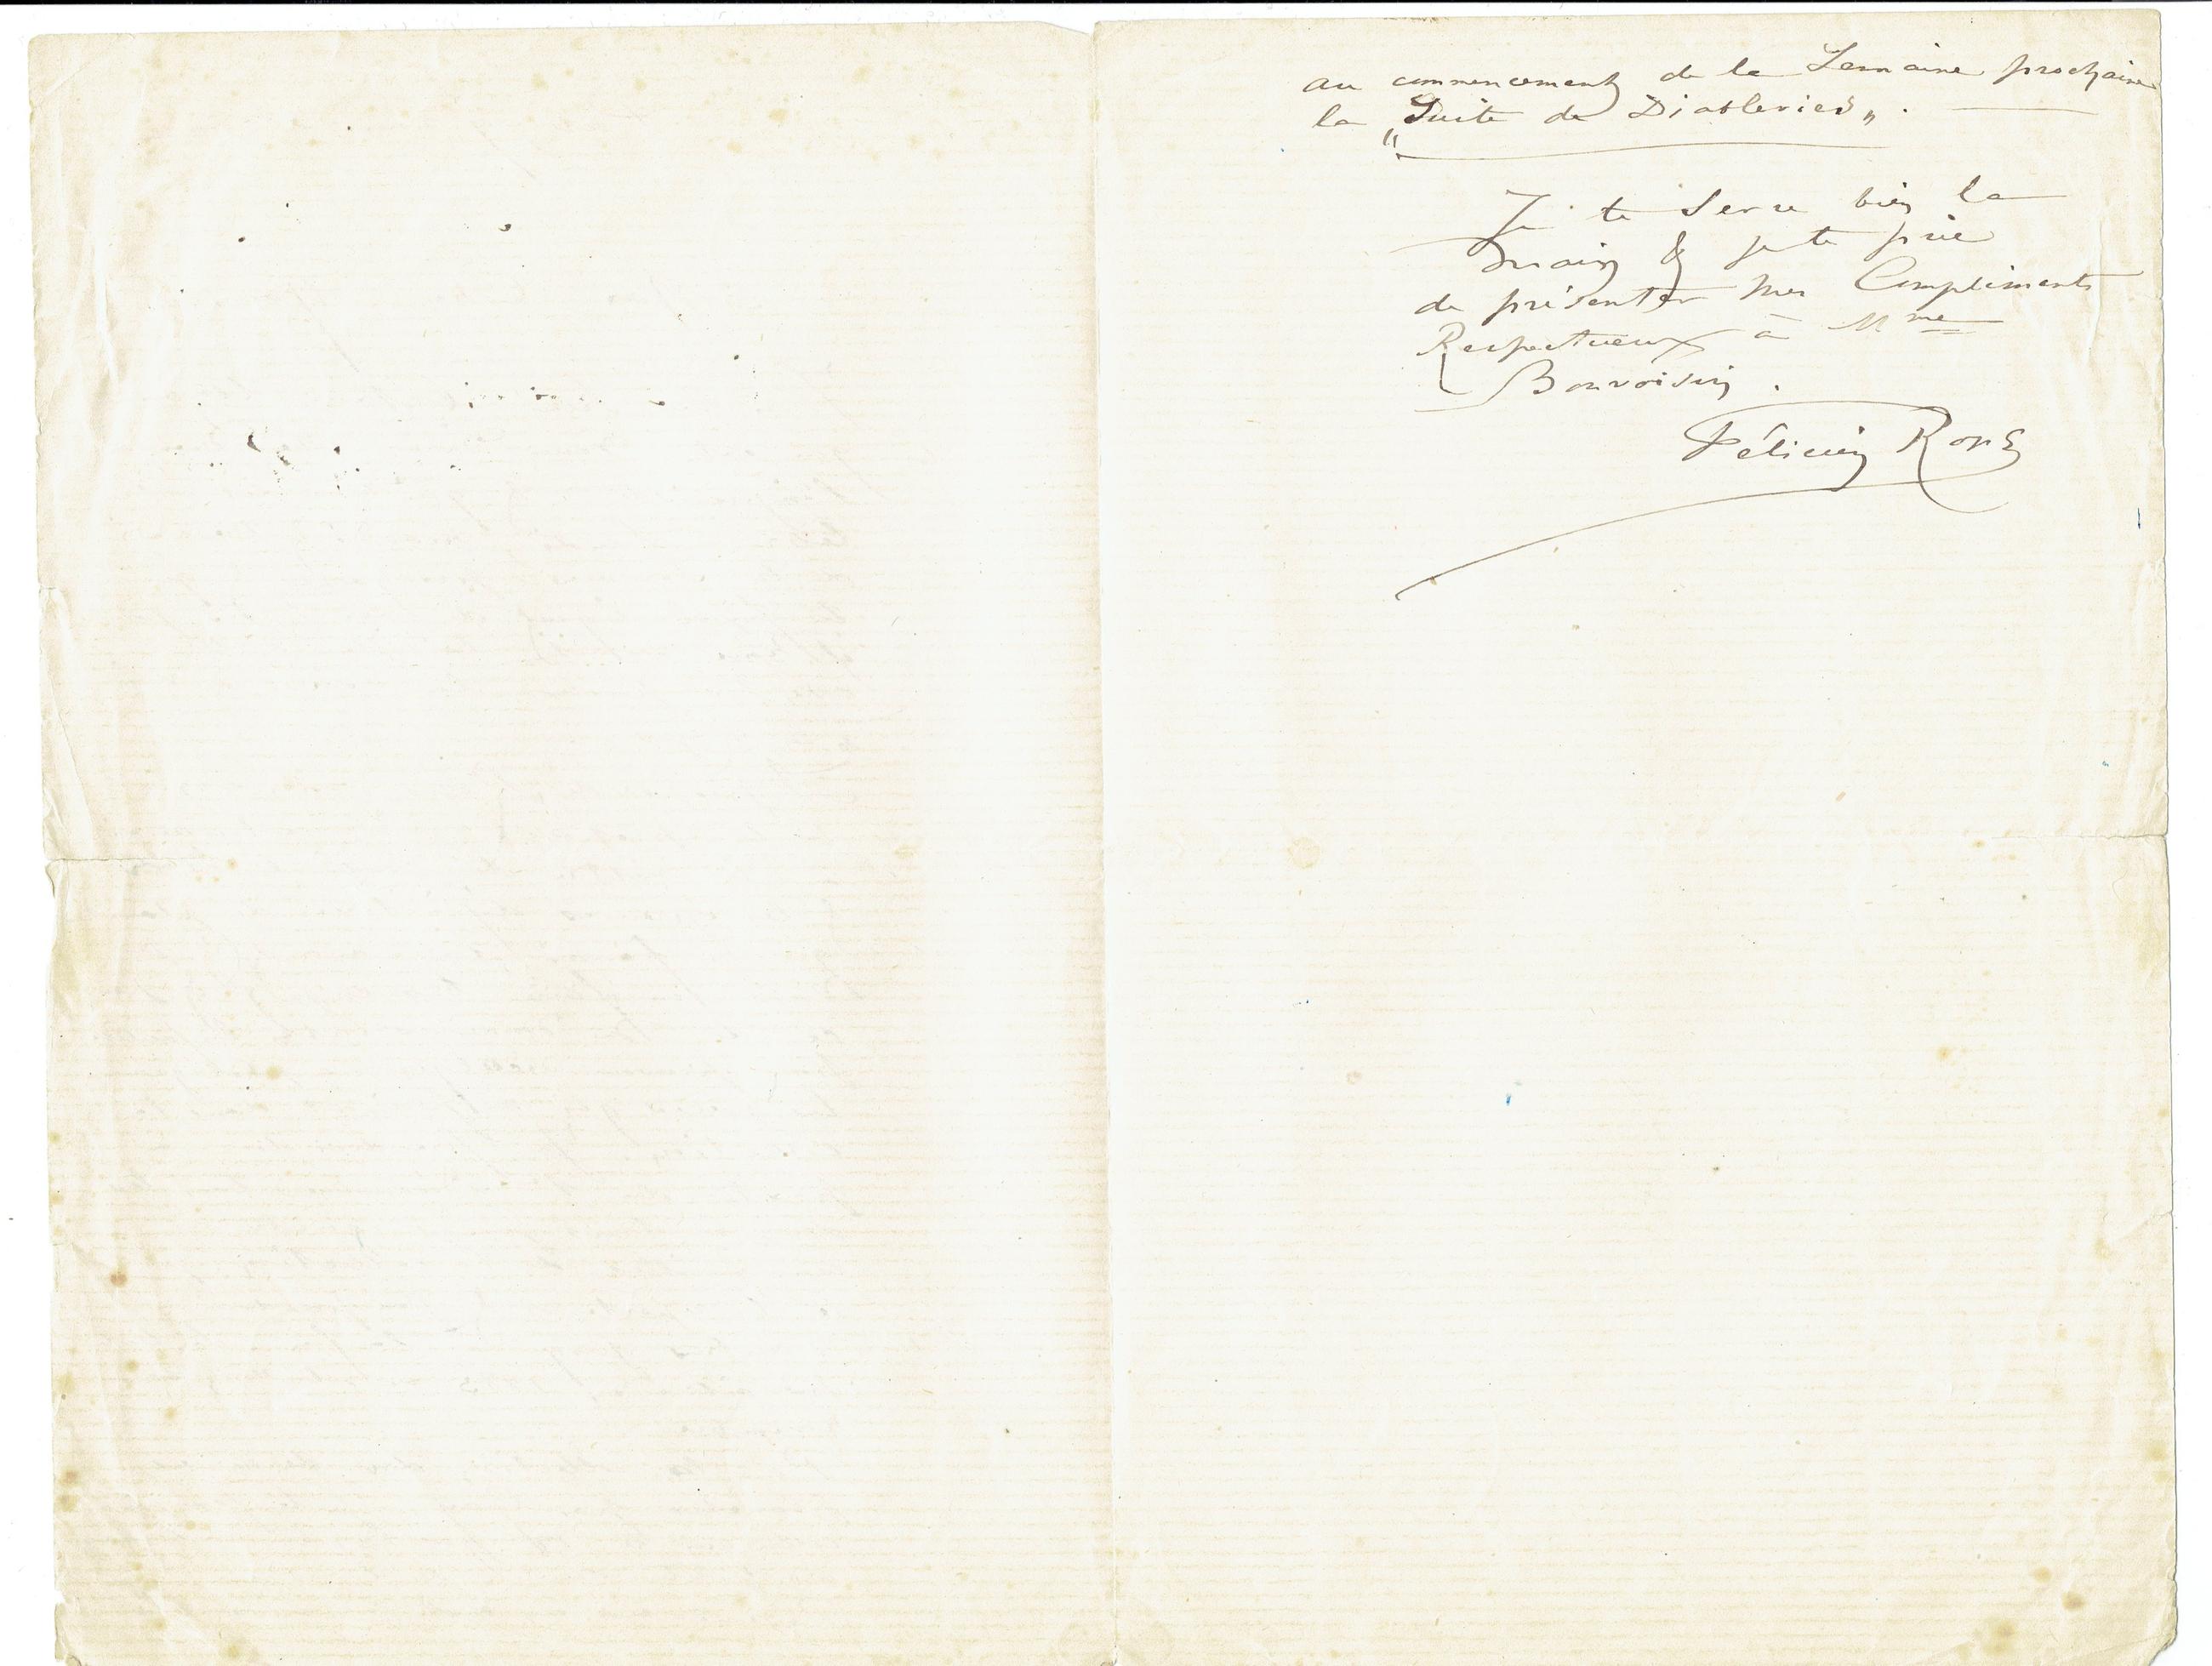 au commencement de la Semaine prochaine
la „Suite de Diableries„. —
Je te serre bien la
main & je te prie
de présenter mes Compliments
Respectueux à Mme
Bonvoisin.
Félicien Rops